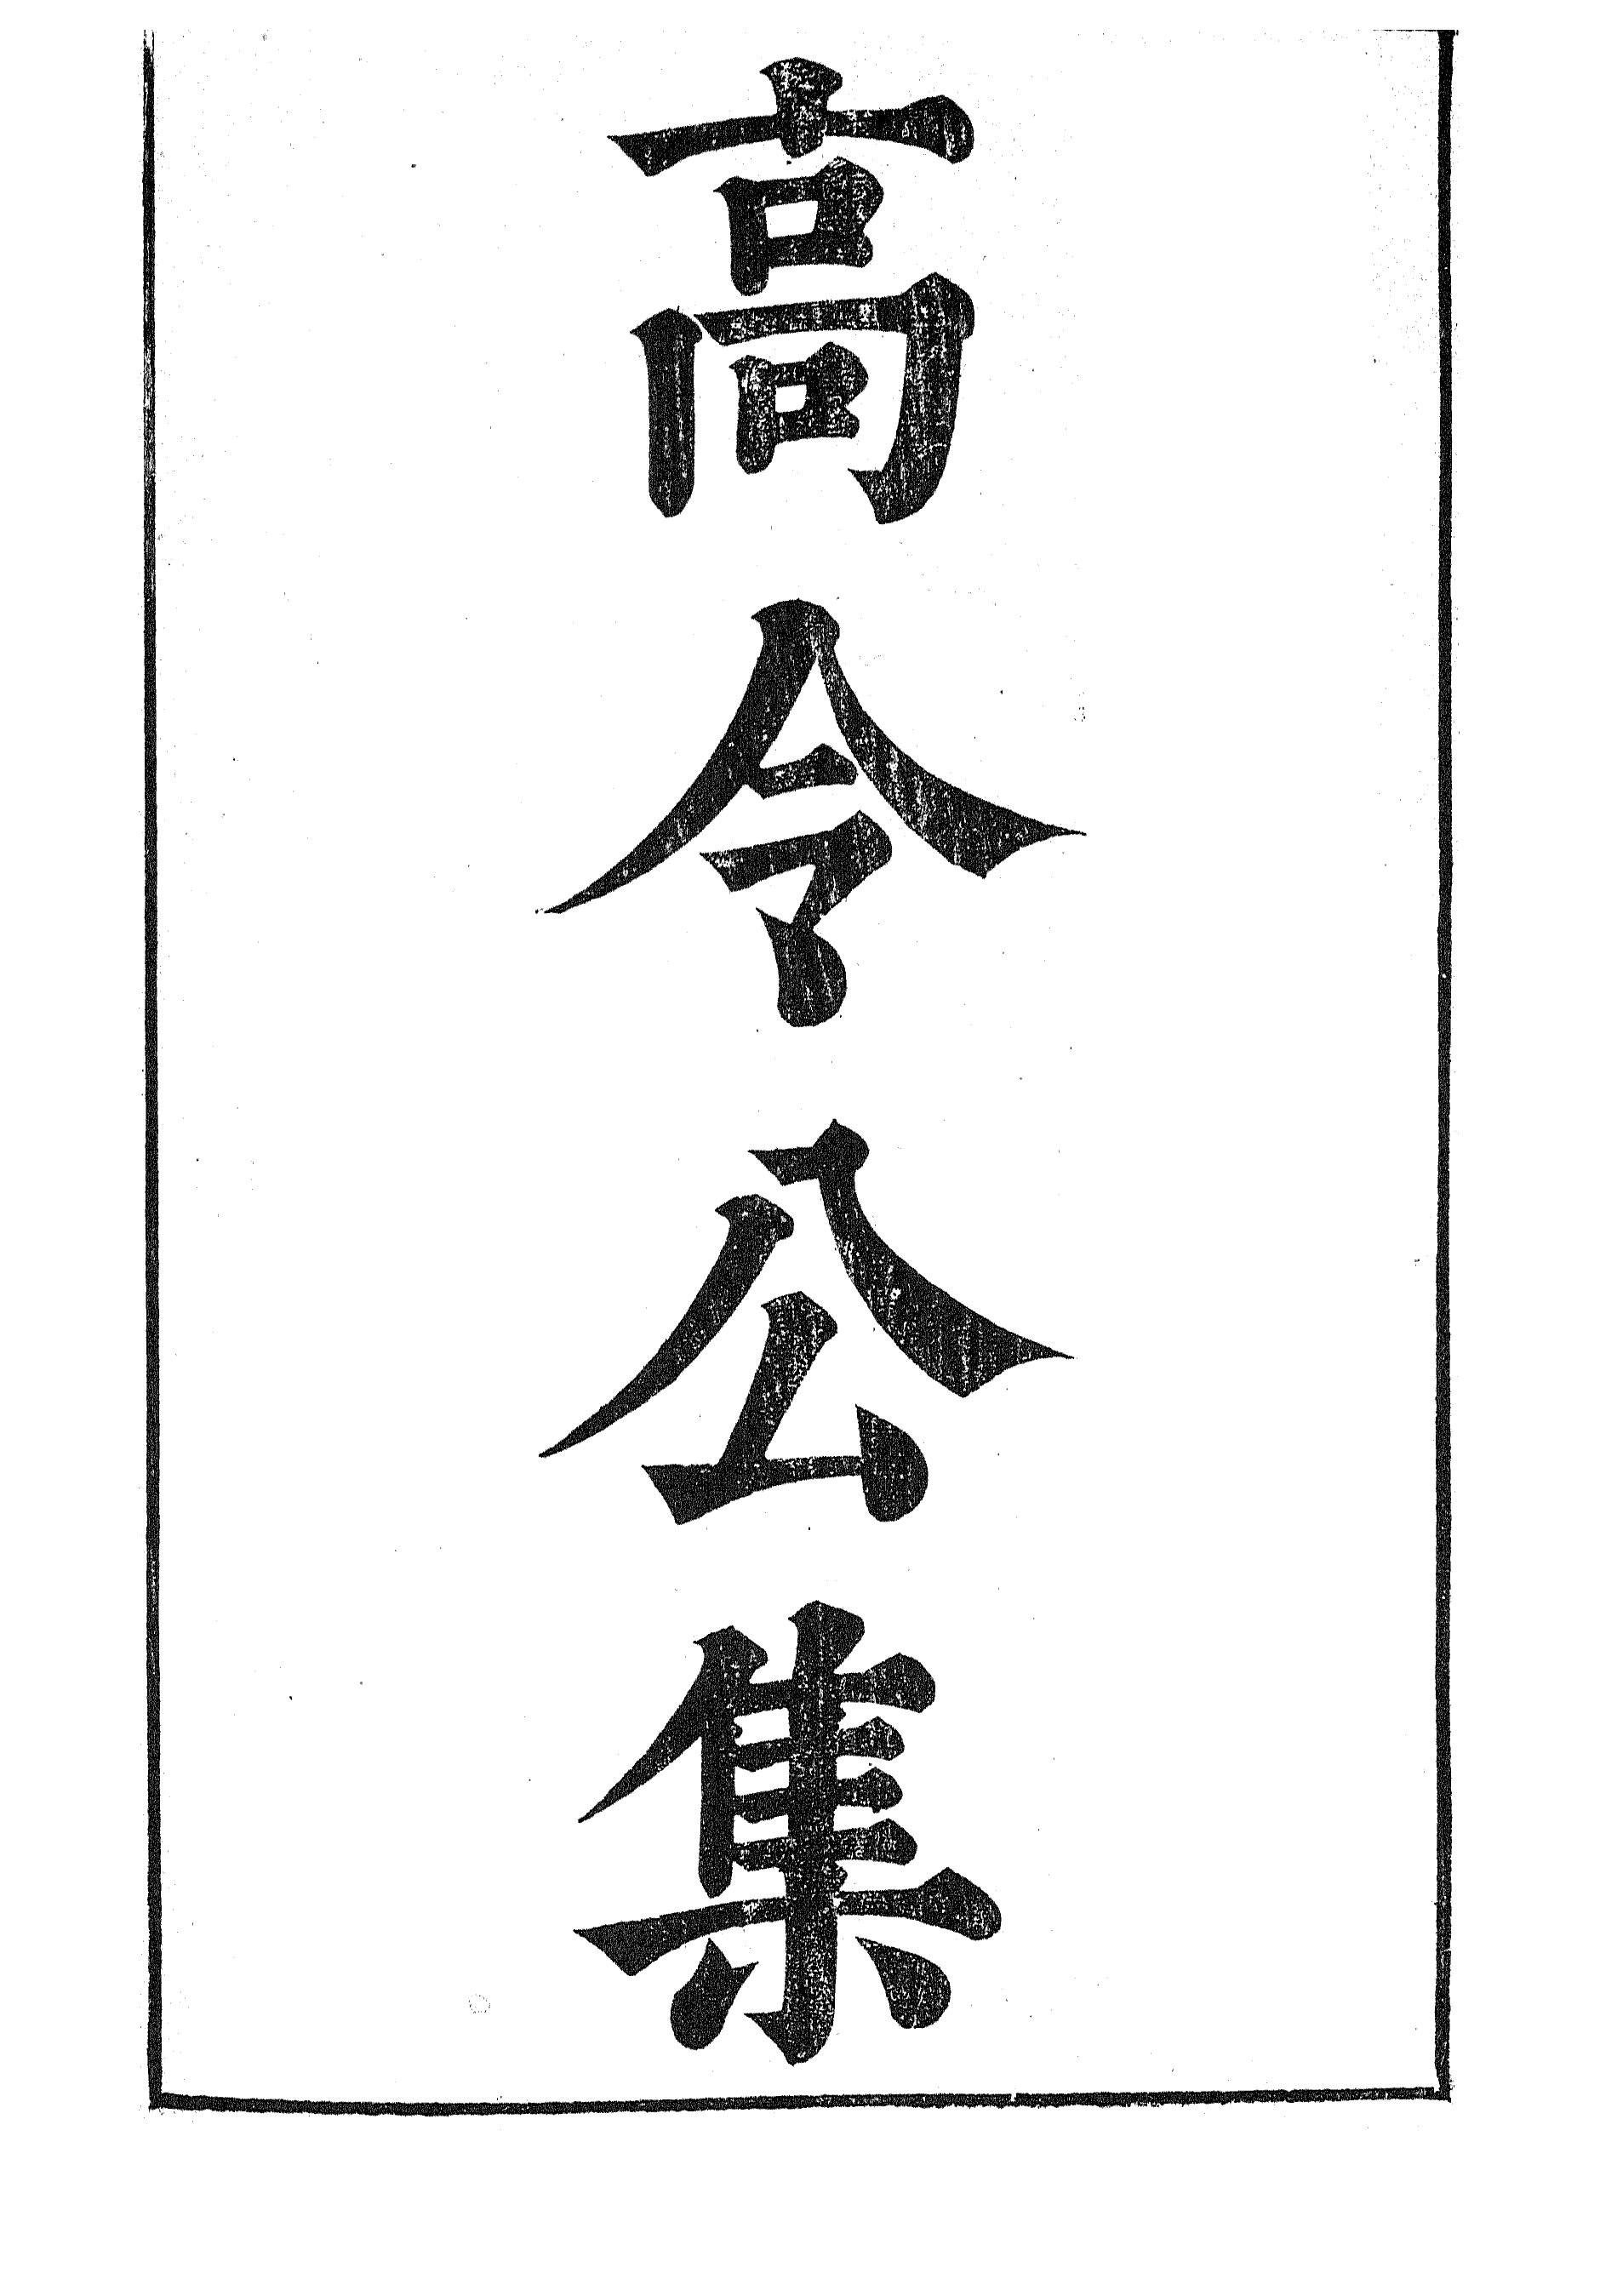 高令公集